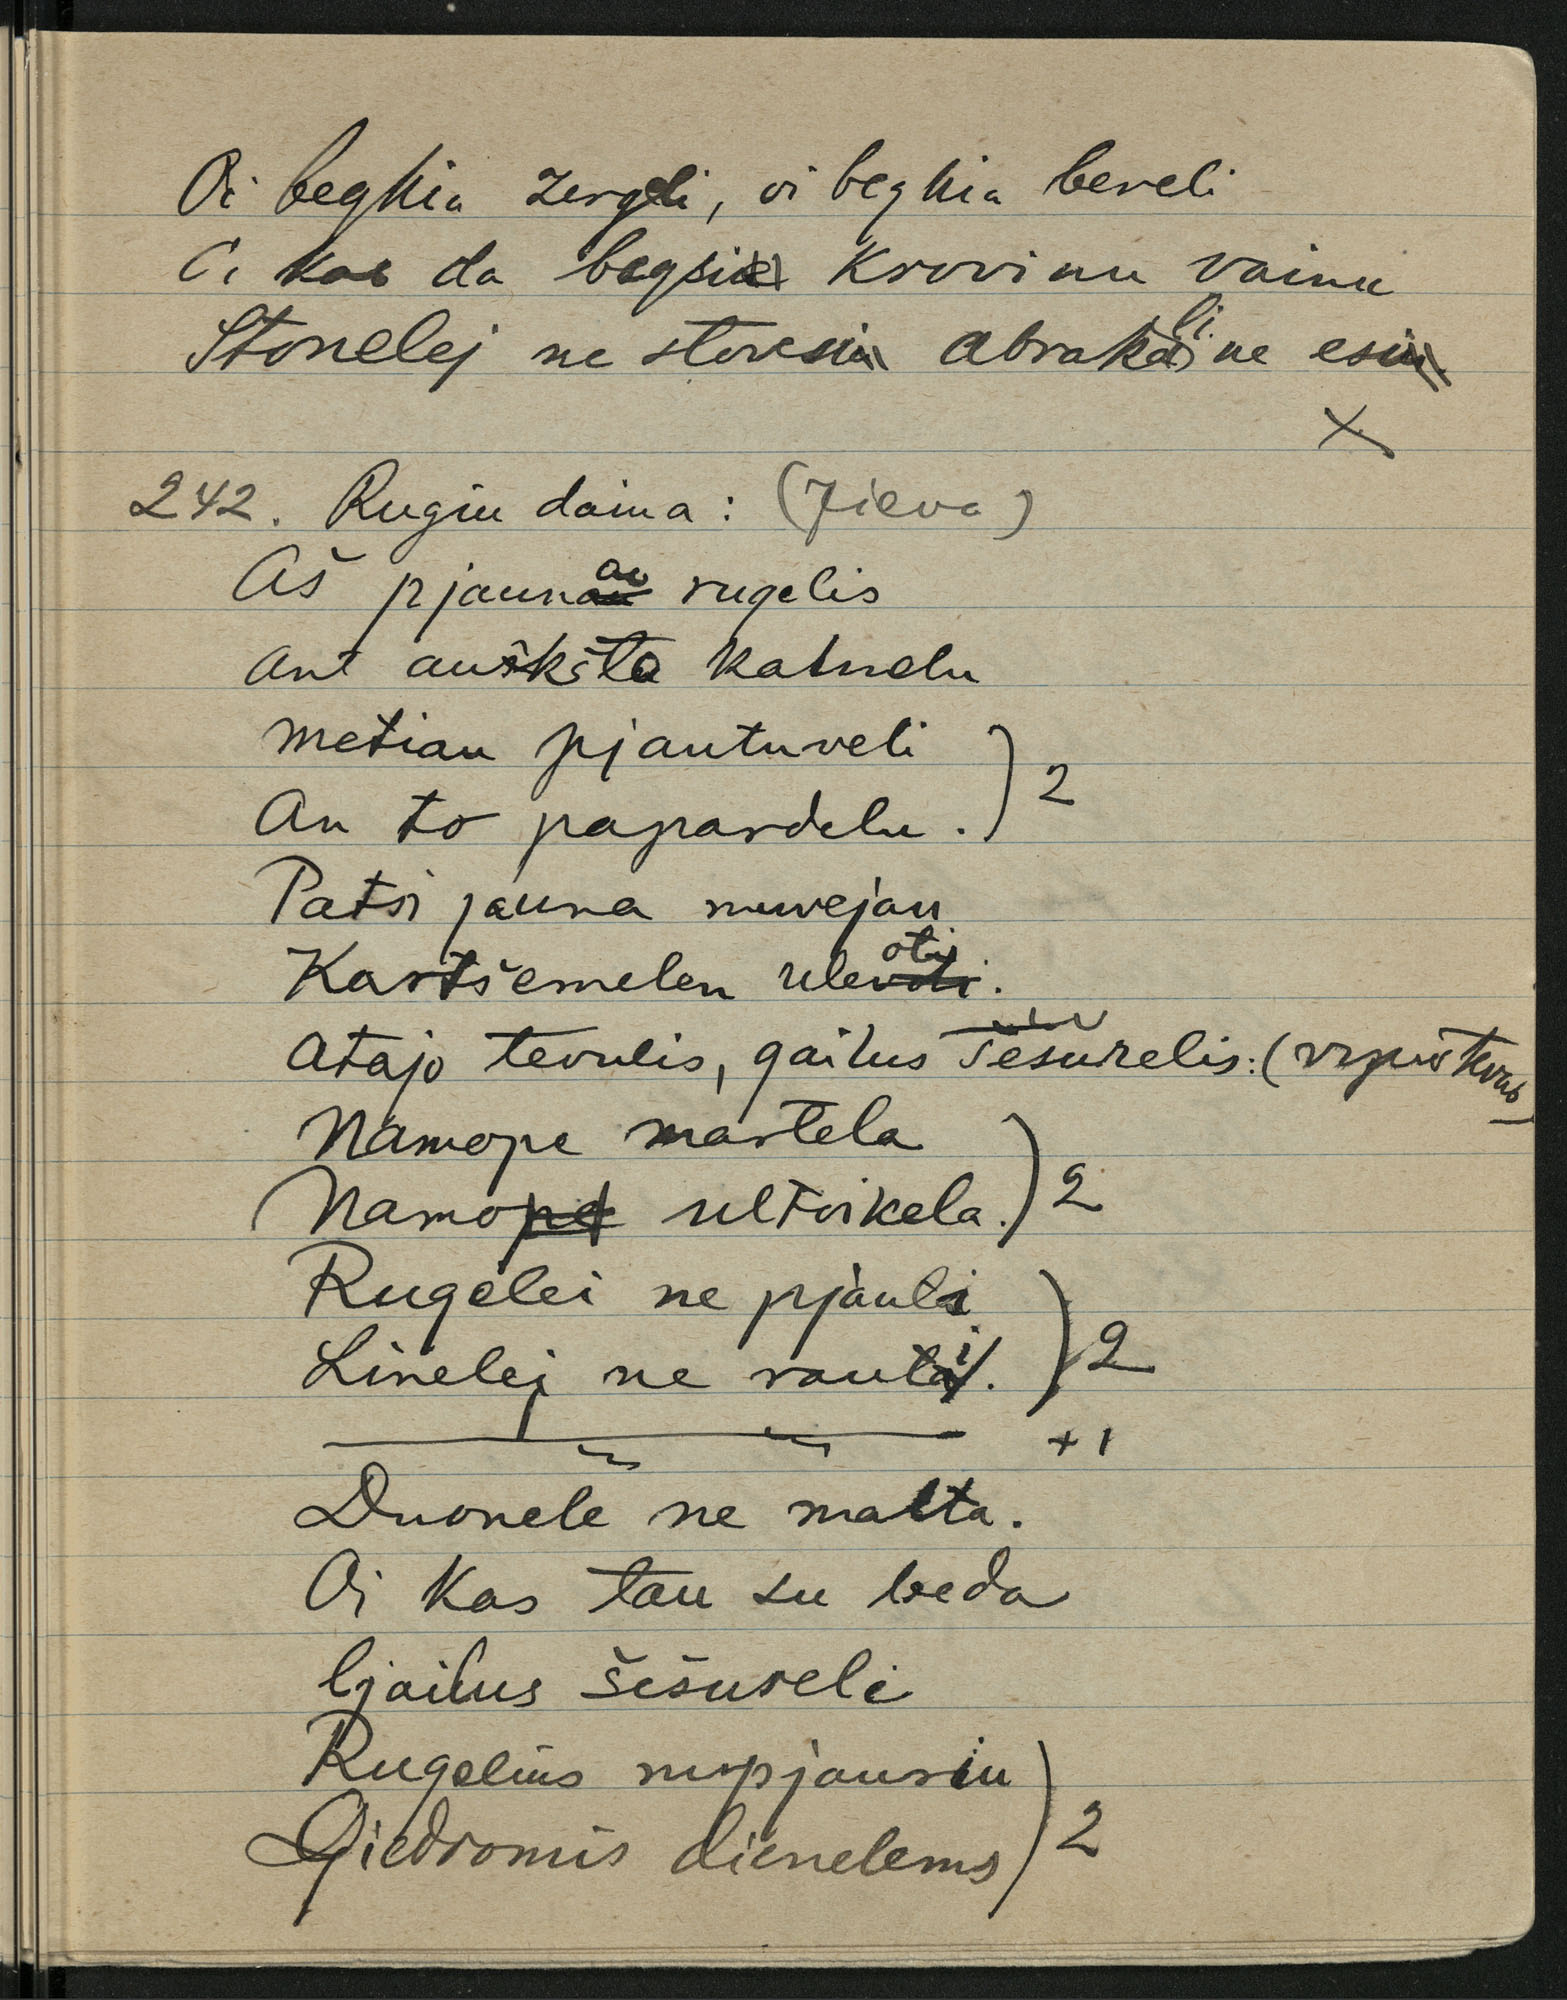 Oi begkia zergeli, oi begkia bereli
Oi kas da begsi krovinu vainu
Stonelej ne storesi abrakeli ne esi
X
242. Rugiu daina: (Jieva)
Aš pjaunao rugelis
ant aukšto kalnelu
metiau pjautuveli
An to papardelu. ) 2
Patsi jauna nuvejau
Kartšemelen uležoti.
Atajo tevulis, gailus šešurelis: (vyrus tevas)
Namope martela
Namo užtvikela. ) 2
Rugelei ne pjauti
Linelej ne rauti. ) 2
+ 1
Duonele ne malta.
Oi kas tau su beda
Gailus šešureli
Rugelius nupjausiu
Giedromis dienelems ) 2